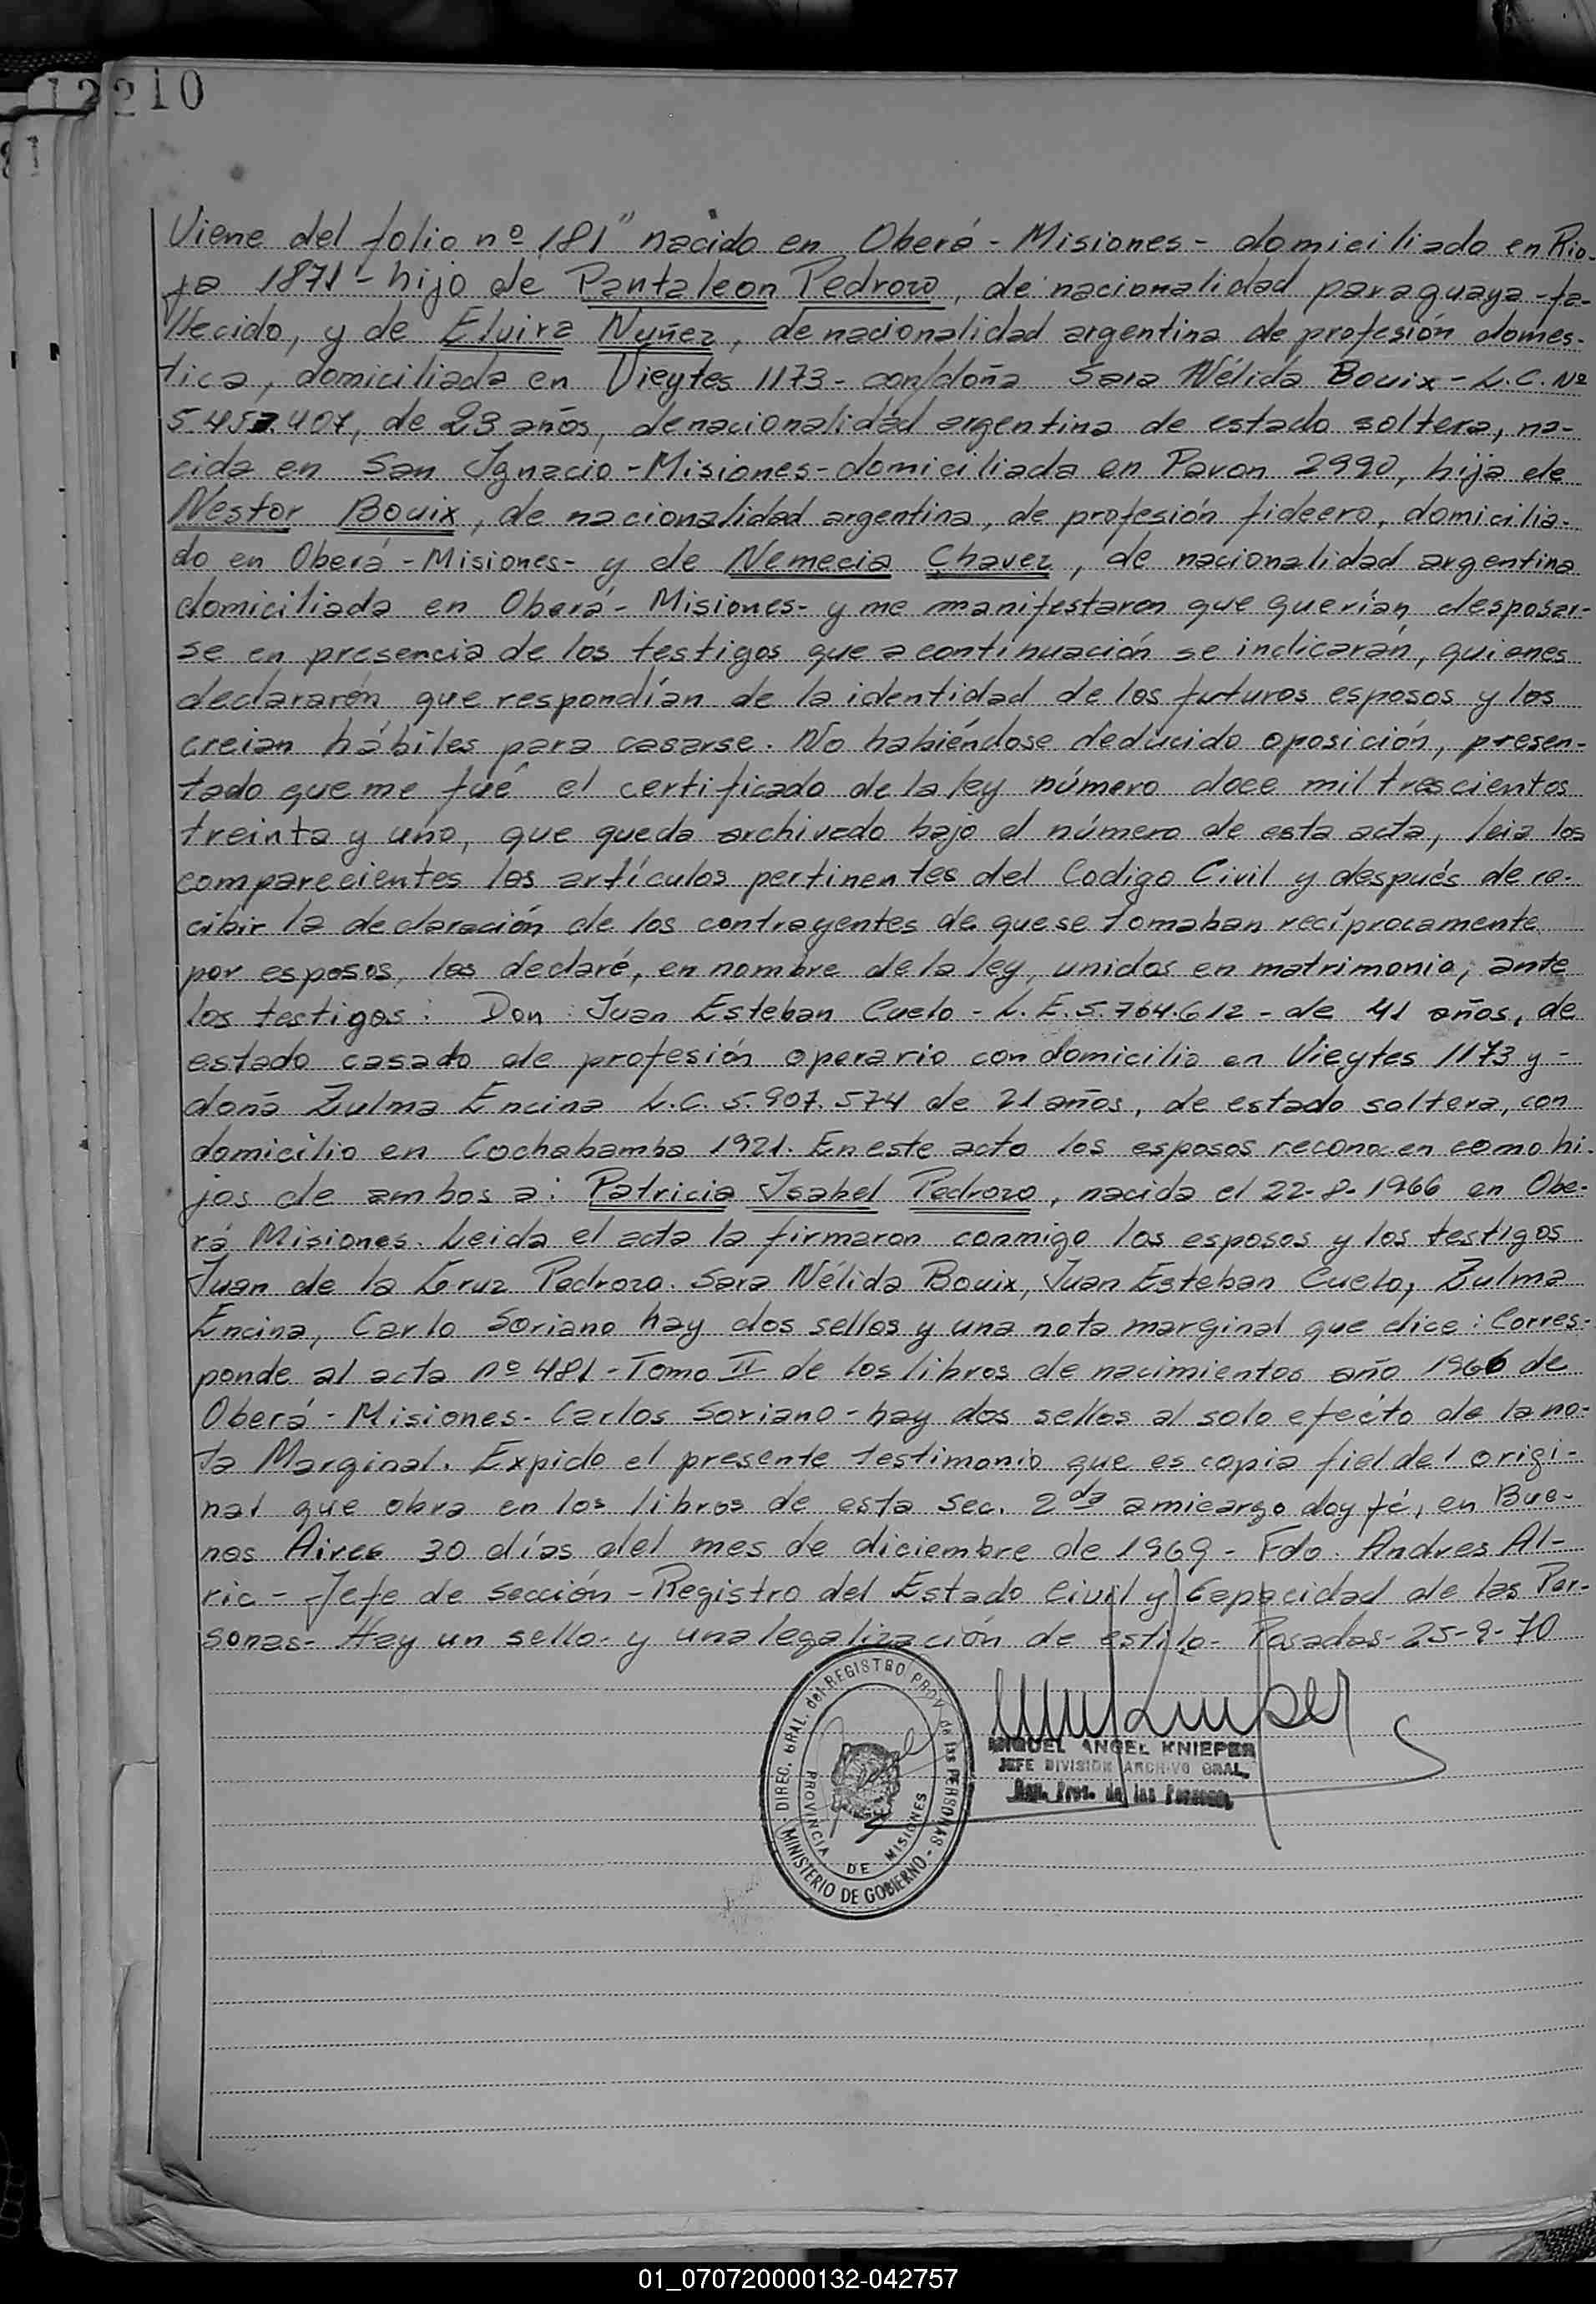 12210
81
Viene del folio nº 181" nacido en Oberá - Misiones - domiciliado en Rio-
ja 1871 - hijo de Pantaleon Pedrozo, de nacionalidad paraguaya - fa-
llecido, y de Elvira Nuñez, de nacionalidad argentina de profesión domes-
tica, domiciliada en Vieytes 1173 - con/doña Sara Nélida Bouix - L.C. Nº
5.457.407, de 23 años, de nacionalidad argentina de estado soltera, na-
cida en San Ignacio - Misiones - domiciliada en Pavon 2990, hija de
Nestor Bouix, de nacionalidad argentina, de profesión fideero, domicilia-
do en Oberá - Misiones - y de Nemecia Chavez, de nacionalidad argentina
domiciliada en Oberá - Misiones - y me manifestaron que querían desposar-
se en presencia de los testigos que a continuación se indicarán, quienes
declararón que respondían de la identidad de los futuros esposos y los
creian hábiles para casarse. No habiéndose deducido oposición, presen-
tado que me fué el certificado de la ley número doce mil trescientos
treinta y uno, que queda archivado bajo el número de esta acta, leia los
comparecientes los artículos pertinentes del Codigo Civil y después de re-
cibir la declaración de los contrayentes de que se tomaban recíprocamente
por esposos, los declaré, en nombre de la ley, unidos en matrimonio, ante
los testigos: Don Juan Esteban Cuelo - L.E. 5.764.612 - de 41 años, de
estado casado de profesión operario con domicilio en Vieytes 1173 y -
doña Zulma Encina L.C. 5.907.574 de 21 años, de estado soltera, con
domicilio en Cochabamba 1921. En este acto los esposos reconocen como hi-
jos de ambos a: Patricia Isabel Pedrozo, nacida el 22-8-1966 en Obe-
rá Misiones. Leida el acta la firmaron conmigo los esposos y los testigos
Juan de la Cruz Pedrozo. Sara Nélida Bouix, Juan Esteban Cuelo, Zulma
Encina, Carlo Soriano hay dos sellos y una nota marginal que dice: Corres-
ponde al acta nº 481 - Tomo II de los libros de nacimientos año 1966 de
Oberá - Misiones - Carlos Soriano - hay dos sellos al solo efecto de la no-
ta Marginal. Expido el presente testimonio que es copia fiel del origi-
nal que obra en los libros de esta Sec. 2da a mi cargo doy fé, en Bue-
nos Aires 30 días del mes de diciembre de 1969 - Fdo. Andres Al-
ric - Jefe de Sección - Registro del Estado Civil y Capacidad de las Per-
sonas - Hay un sello - y una legalización de estilo - Posadas - 25-9-70
DIREC. GRAL. del REGISTRO PROV. de las PERSONAS
PROVINCIA DE MISIONES
MINISTERIO DE GOBIERNO
MIGUEL ANGEL KNIEPER
JEFE DIVISION ARCHIVO GRAL.
Reg. Prov. de las Personas
01_070720000132-042757